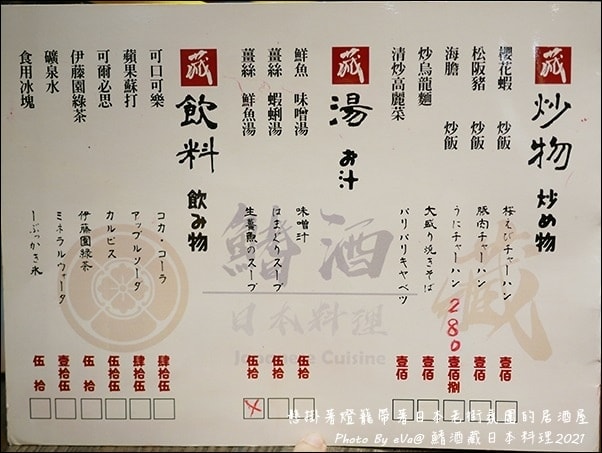 藏 炒物 炒め物
櫻花蝦 炒飯 桜えびチャーハン 壹佰
松阪豬 炒飯 豚肉チャーハン 壹佰
海膽 炒飯 うにチャーハン 280 壹佰捌
炒烏龍麵 大盛り焼きそば 壹佰
清炒高麗菜 パリパリキャベツ 壹佰
藏 湯 お汁
鮮魚 味噌湯 味噌汁 伍拾
薑絲 蝦蜊湯 はまぐりスープ 伍拾
薑絲 鮮魚湯 生薑魚のスープ 伍拾
藏 飲料 飲み物
可口可樂 コカ・コーラ 肆拾伍
蘋果蘇打 アップルソーダ 肆拾伍
可爾必思 カルピス 伍拾伍
伊藤園綠茶 伊藤園緑茶 伍拾
礦泉水 ミネラルウォータ 壹拾伍
食用冰塊 ーぶっかき氷 伍拾
鰭酒藏
日本料理
Japanese Cuisine
懸掛著燈籠帶著日本老街氛圍的居酒屋
Photo By eVa@ 鰭酒藏日本料理2021